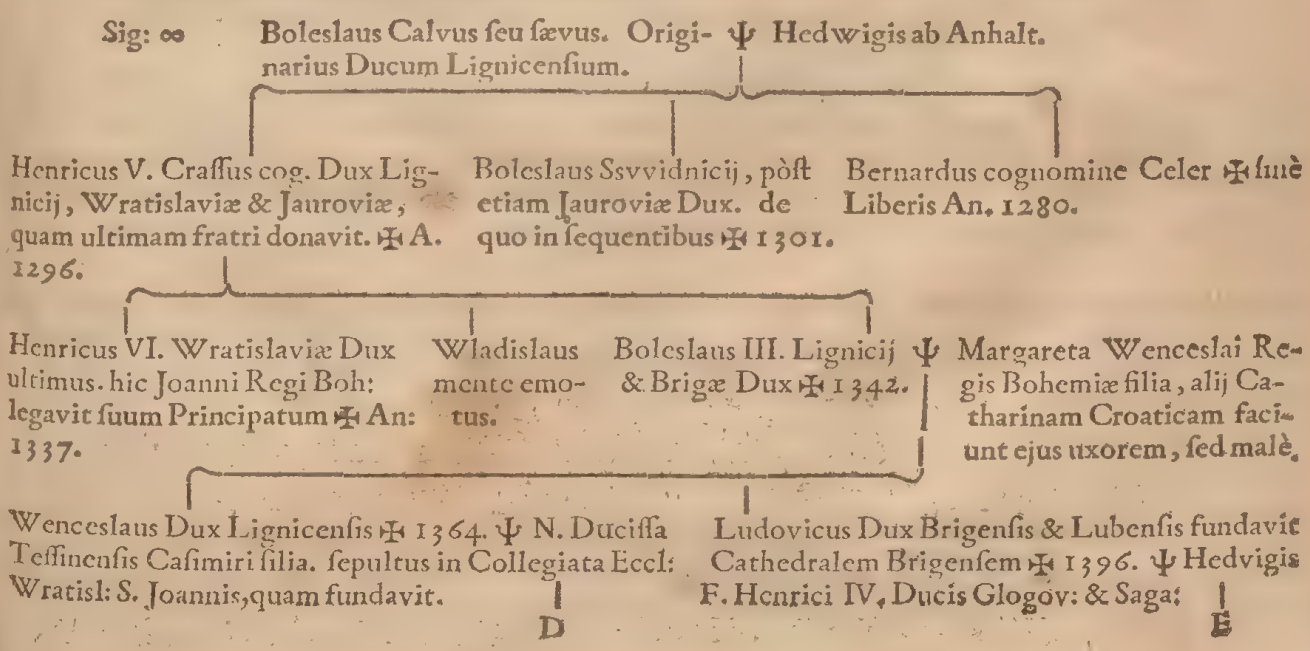 Sig: ∞ Boleslaus Calvus ſeu ſævus. Origi- Ψ Hedwigis ab Anhalt.
narius Ducum Lignicenſium.
Henricus V. Craſſus cog. Dux Lig-
nicij, Wratislaviæ & Jauroviæ,
quam ultimam fratri donavit. ✠ A.
1296.
Boleslaus Ssvvidnicij, pòſt
etiam Jauroviæ Dux. de
quo in ſequentibus ✠ 1301.
Bernardus cognomine Celer ✠ ſinè
Liberis An. 1280.
Henricus VI. Wratislaviæ Dux
ultimus. hic Joanni Regi Boh:
legavit ſuum Principatum ✠ An:
1337.
Wladislaus
mente emo-
tus.
Boleslaus III. Lignicij Ψ
& Brigæ Dux ✠ 1342.
Margareta Wenceslai Re-
gis Bohemiæ filia, alij Ca-
tharinam Croaticam faci-
unt ejus uxorem, ſed malè.
Wenceslaus Dux Lignicenſis ✠ 1364. Ψ N. Duciſſa
Teſſinenſis Caſimiri filia. ſepultus in Collegiata Eccl:
Wratisl: S. Joannis, quam fundavit.
D
Ludovicus Dux Brigenſis & Lubenſis fundavit
Cathedralem Brigenſem ✠ 1396. Ψ Hedvigis
F. Henrici IV. Ducis Glogov: & Saga:
E